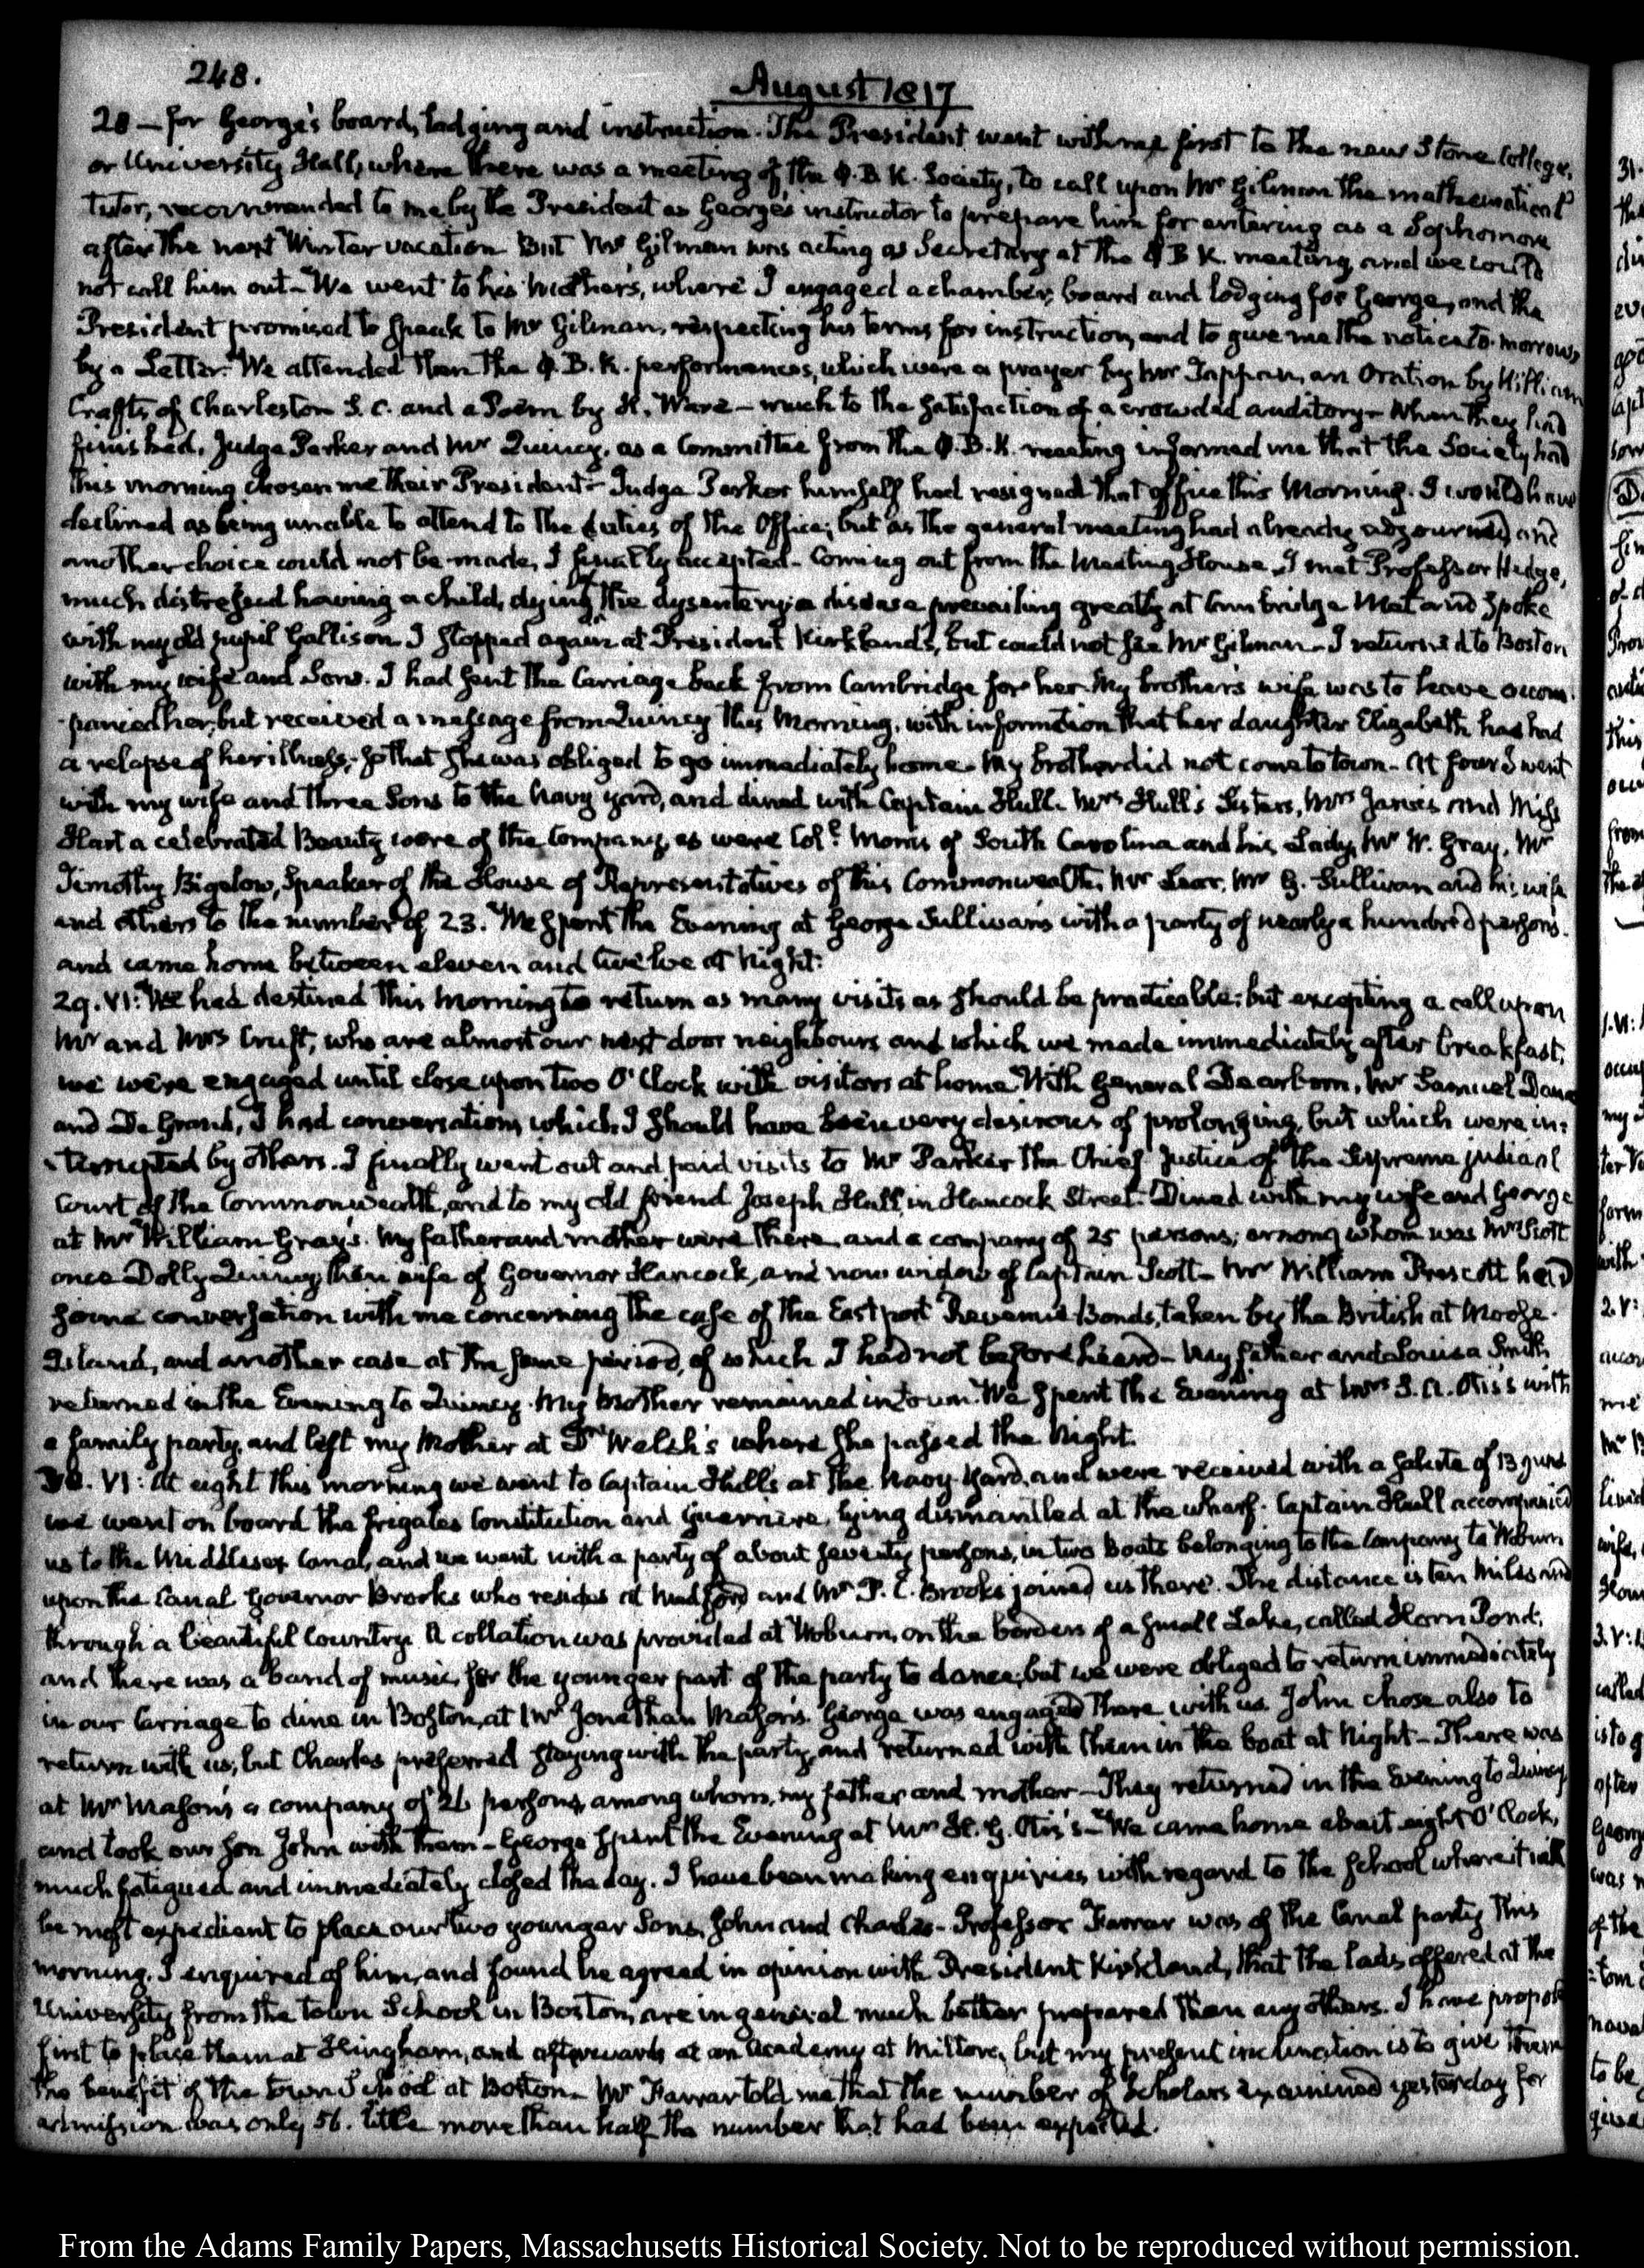 248.
August 1817
28 — for George's board, lodging and instruction. The President went with me first to the new Stone College,
or University Hall, where there was a meeting of the Φ.B.K. Society, to call upon Mr Gilman the mathematical
Tutor, recommended to me by the President as George's instructor to prepare him for entering as a Sophomore
after the next Winter vacation. But Mr Gilman was acting as Secretary at the Φ B K. meeting, and we could
not call him out — We went to his Mother's, where I engaged a chamber, board and lodging for George, and the
President promised to speak to Mr Gilman, respecting his terms for instruction, and to give me the notice to-morrow,
by a Letter. We attended then the Φ.B.K. performances, which were a prayer by Mr Tappan, an Oration by William
Crafts, of Charleston S.C. and a Poem by H. Ware — much to the satisfaction of a crowded auditory — When they had
finished, Judge Parker and Mr Quincy, as a Committee from the Φ.B.K. meeting informed me that the Society had
this morning chosen me their President — Judge Parker himself had resigned that office this Morning. I would have
declined as being unable to attend to the duties of the Office; but as the general meeting had already adjourned, and
another choice could not be made, I finally accepted — Coming out from the Meeting House, I met Professor Hedge,
much distressed having a child, dying of the dysentery; a disease prevailing greatly at Cambridge Met and Spoke
with my old pupil Gallison. I stopped again at President Kirkland's, but could not see Mr Gilman — I returned to Boston
with my wife and Sons. I had sent the Carriage back from Cambridge for her. My brother's wife was to have accom-
-panied her; but received a message from Quincy this Morning, with information that her daughter Elizabeth has had
a relapse of her illness; so that she was obliged to go immediately home — My brother did not come to town — At four I went
with my wife and three Sons to the Navy yard, and dined with Captain Hull. Mrs Hull's Sisters, Mrs Jarvis and Miss
Hart a celebrated Beauty were of the Company, as were Coll. Morris of South Carolina and his Lady, Mr W. Gray, Mr
Timothy Bigelow, Speaker of the House of Representatives of this Commonwealth, Mr Lear, Mr G. Sullivan and his wife
and others to the number of 23. We spent the Evening at George Sullivan's with a party of nearly a hundred persons.
and came home between eleven and twelve at Night.
29. VI: We had destined this Morning to return as many visits as should be practicable; but excepting a call upon
Mr and Mrs Cruft, who are almost our next door neighbours and which we made immediately after breakfast,
we were engaged until close upon two O'Clock with visitors at home. With General Dearborn, Mr Samuel Dana
and De Grand, I had conversations, which I should have been very desirous of prolonging, but which were in-
-terrupted by others. I finally went out and paid visits to Mr Parker the Chief Justice of the Supreme judicial
Court of the Commonwealth, and to my old friend Joseph Hall, in Hancock Street. Dined with my wife and George
at Mr William Gray's. My father and mother were there, and a company of 25 persons; among whom was Mrs Scott
once Dolly Quincy, then wife of Governor Hancock, and now widow of Captain Scott — Mr William Prescott held
some conversation with me concerning the case of the Eastport Revenue Bonds, taken by the British at Moose-
Island, and another case at the same period, of which I had not before heard — My father and Louisa Smith
returned in the Evening to Quincy. My Mother remained in town. We spent the Evening at Mrs S. A. Otis's with
a family party, and left my Mother at Dr Welsh's where she passed the Night.
30. VI: At eight this morning we went to Captain Hull's at the Navy Yard, and were received with a salute of 13 guns
we went on board the frigates Constitution and Guerriere, lying dismantled at the wharf. Captain Hull accompanied
us to the Middlesex Canal, and we went with a party of about seventy persons, in two Boats belonging to the Company to Woburn
upon the Canal Governor Brooks who resides at Medford and Mr P. C. Brooks joined us there. The distance is ten Miles and
through a beautiful Country. A collation was provided at Woburn, on the borders of a small Lake, called Horn Pond;
and there was a band of music, for the younger part of the party to dance; but we were obliged to return immediately
in our Carriage to dine in Boston, at Mr Jonathan Mason's. George was engaged there with us. John chose also to
return with us; but Charles preferred staying with the party, and returned with them in the boat at Night — There was
at Mr Mason's a company of 26 persons, among whom, my father and mother — They returned in the Evening to Quincy
and took our Son John with them — George spent the Evening at Mr H. G. Otis's — We came home about eight O'Clock,
much fatigued and immediately closed the day. I have been making enquiries with regard to the School where it will
be most expedient to place our two younger Sons, John and Charles — Professor Farrar was of the Canal party this
morning. I enquired of him, and found he agreed in opinion with President Kirkland, that the lads offered at the
University from the town School in Boston, are in general much better prepared than any others. I have propos
first to place them at Hingham, and afterwards at an Academy at Milton, but my present inclination is to give them
the benefit of the town School at Boston — Mr Farrar told me that the number of Scholars examined yesterday for
admission was only 56. little more than half the number that had been expected.
From the Adams Family Papers, Massachusetts Historical Society. Not to be reproduced without permission.